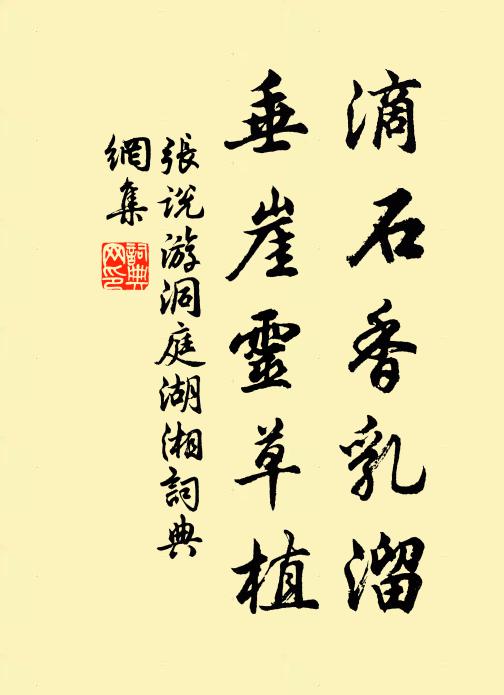 滴石香乳溜
垂崖靈草植
張說游洞庭湖湘詞典
網集
詞典網印